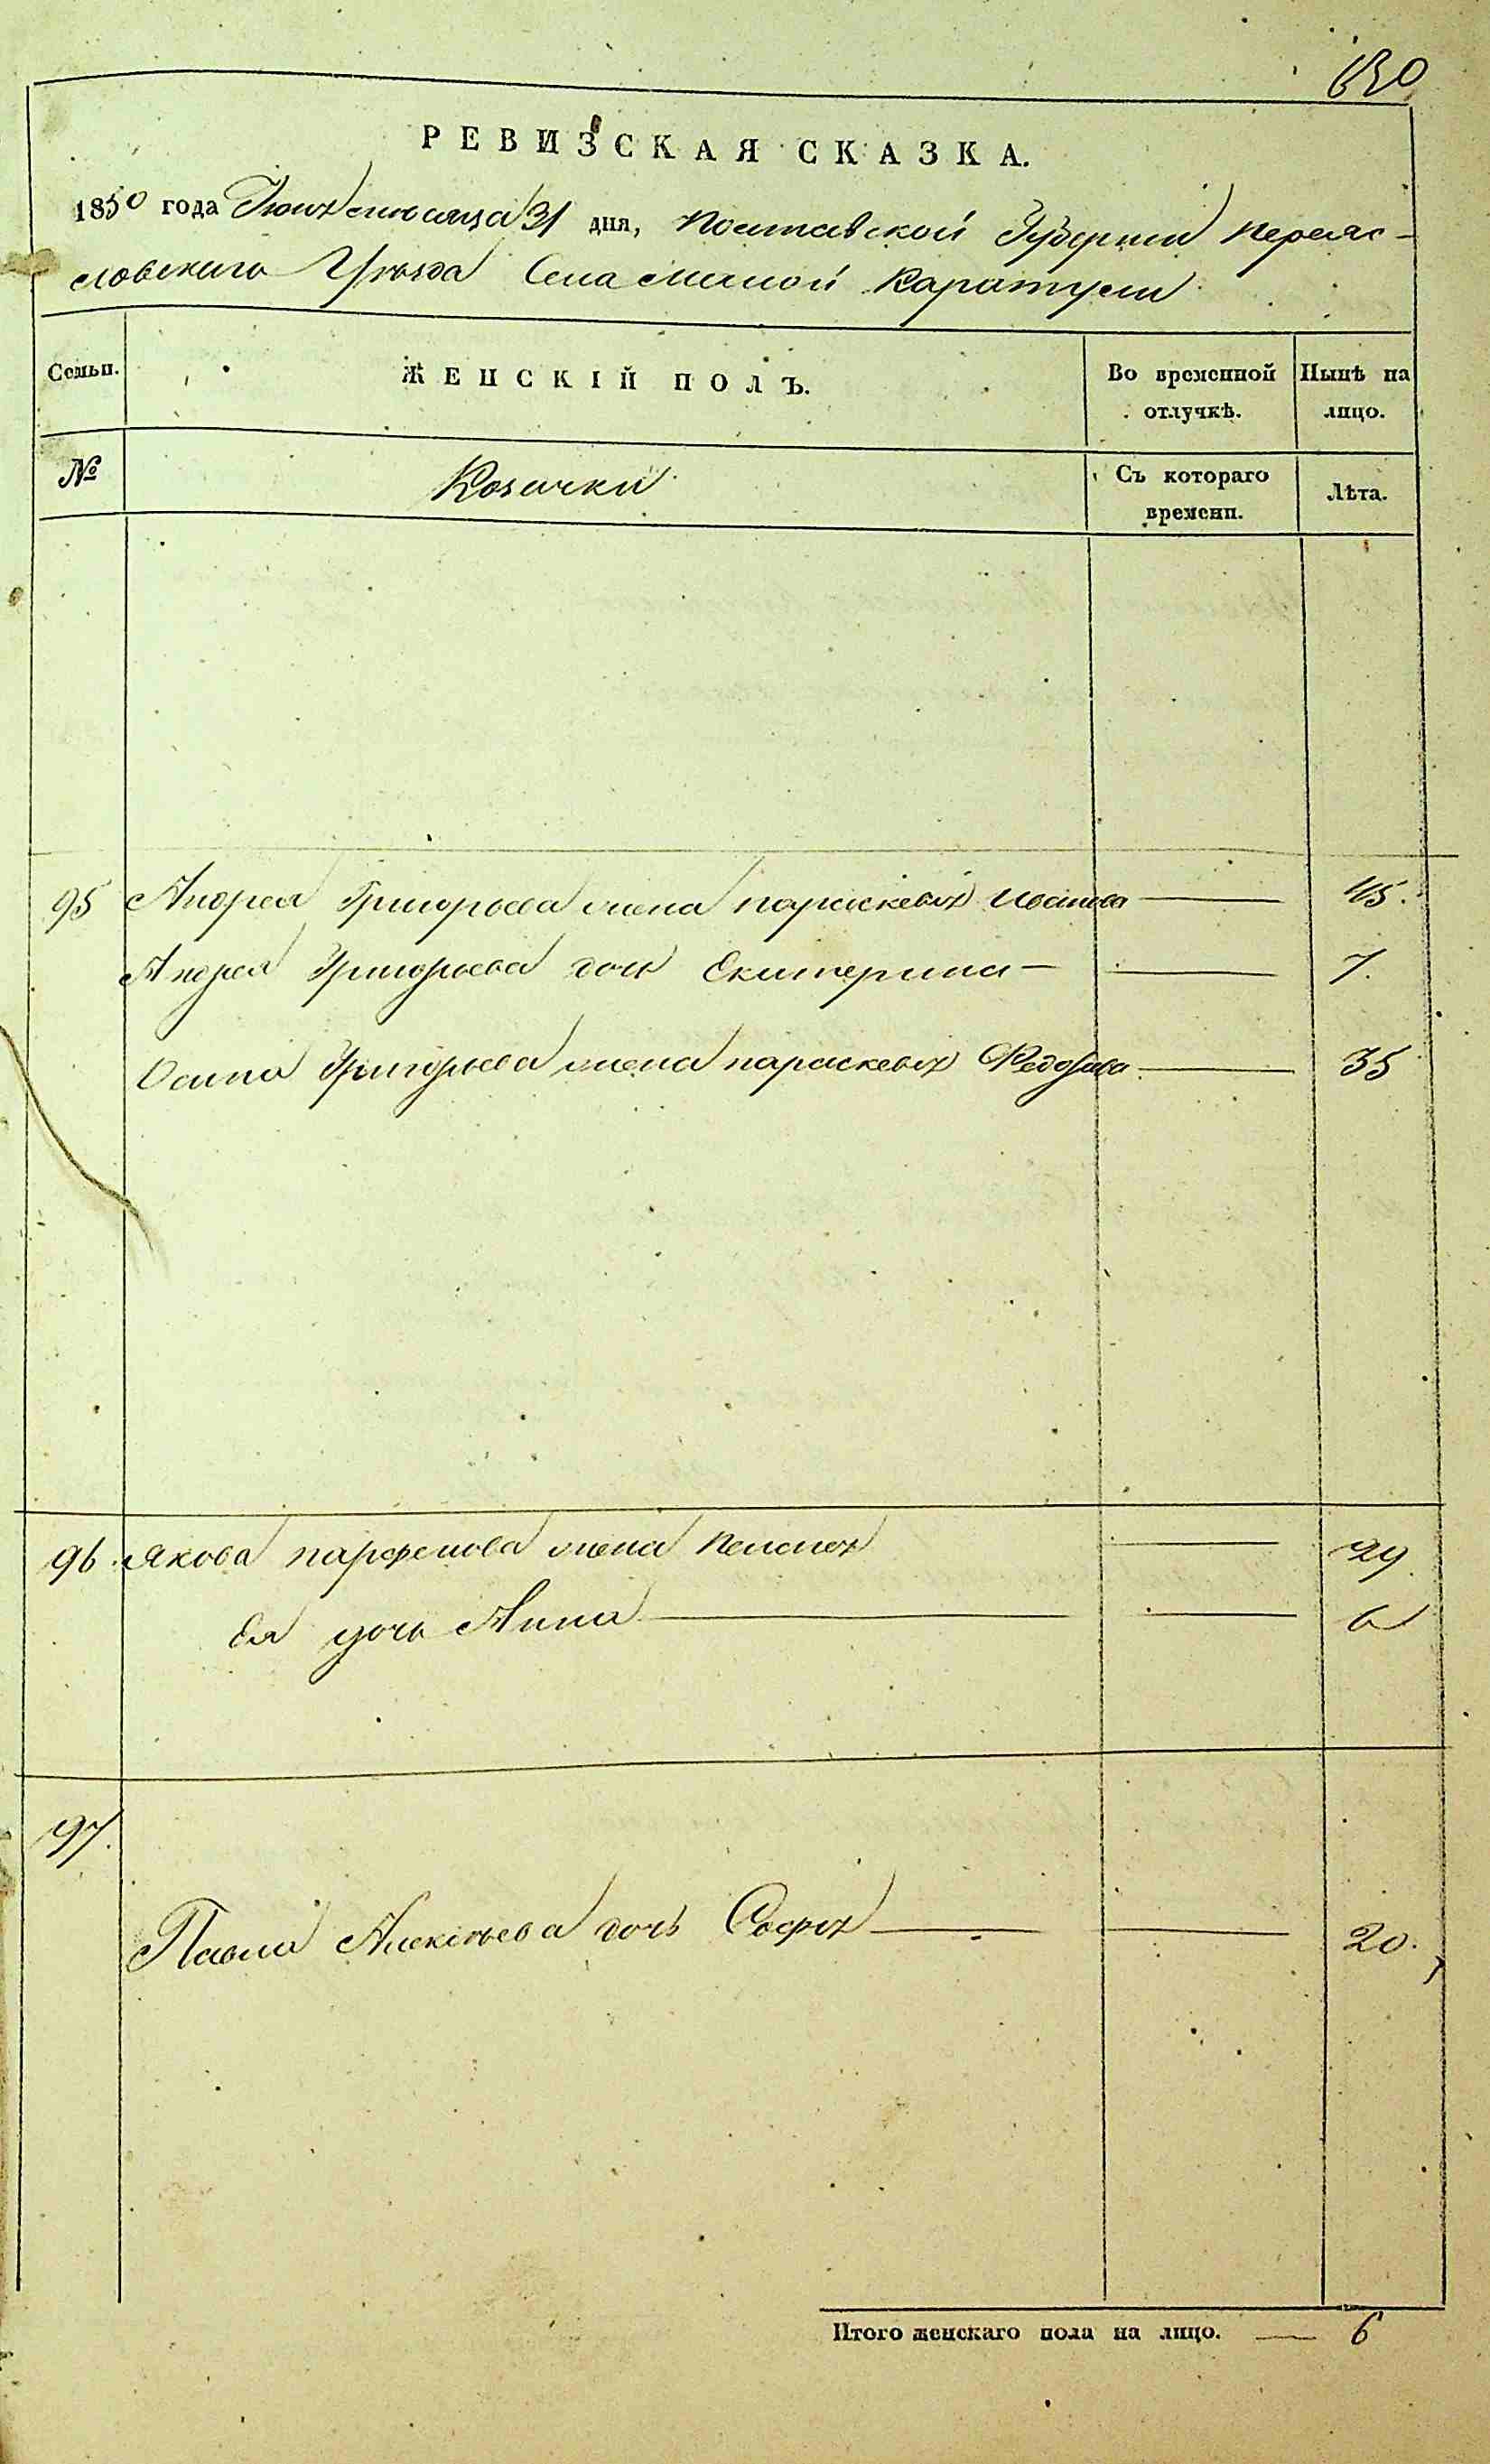 630
РЕВИЗСКАЯ СКАЗКА.
1850 года Июля месяца 31 дня, Полтавской Губернии Переяс-
ловского Уѣзда Села Малой Каратули
Семьи. ЖЕНСКІЙ ПОЛЪ. Во временной отлучкѣ. Нынѣ на лицо.
№ Козачки Съ котораго времени. Лѣта.
95 Андрея Григорьева жена Параскевія Иванова — 45.
Андрея Григорьева дочь Екатерина — — 7.
Осипа Григорьева жена Параскевія Федорова — 35
96. Якова Парфенова жена Пелагея — 29.
Ея дочь Анна — — 6
97.
Павла Алексѣева дочь Софія — — 20.
Итого женскаго пола на лицо. — 6